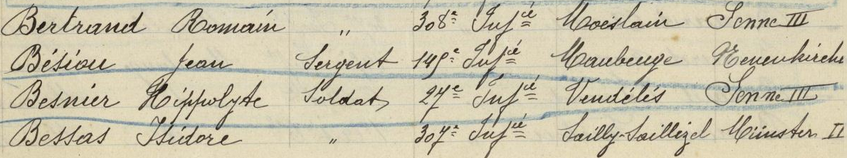 Bertrand Romain " 308e Infie Moëslain Senne III
Bésiou Jean Sergent 145e Infie Maubeuge Neuenkirche
Besnier Hippolyte Soldat 27e Infie Vendélés Senne III
Bessas Isidore " 307e Infie Sailly-Saillizel Münster II